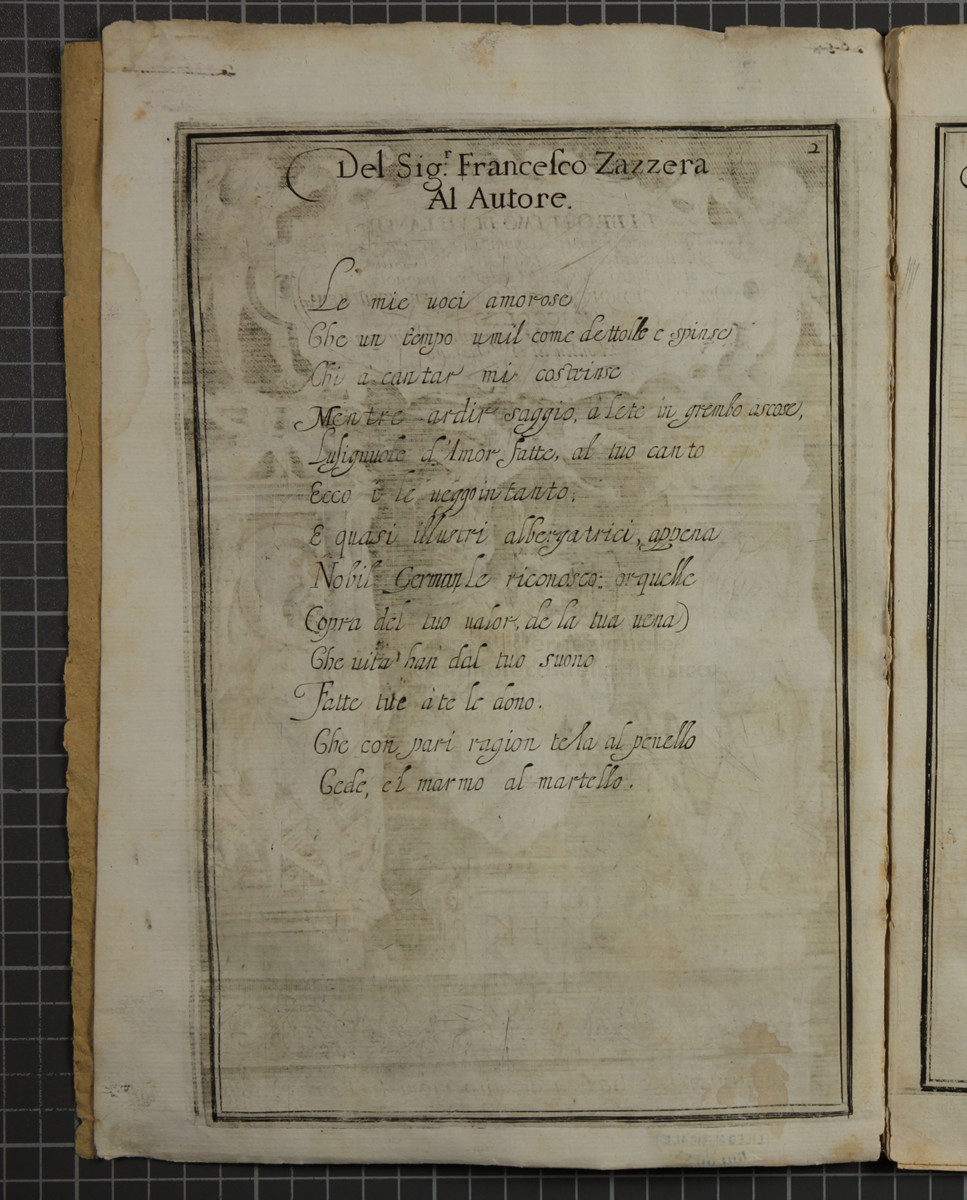 2
Del Sig.r Franceſco Zazzera
Al Autore.
Le mie uoci amorose
Che un tempo umil come dettolle e spinse
Chi à cantar mi costrinse
Mentre ardir saggio, à lete in grembo ascose,
Lusignuole d'Amor fatte, al tuo canto
Ecco i le ueggo intanto;
E quasi illustri albergatrici, appena
Nobil German le riconosco: or quelle
(opra del tuo ualor, de la tua uena)
Che uita han dal tuo suono
Fatte tue à te le dono.
Che con pari ragion tela al penello
Cede, el marmo al martello.